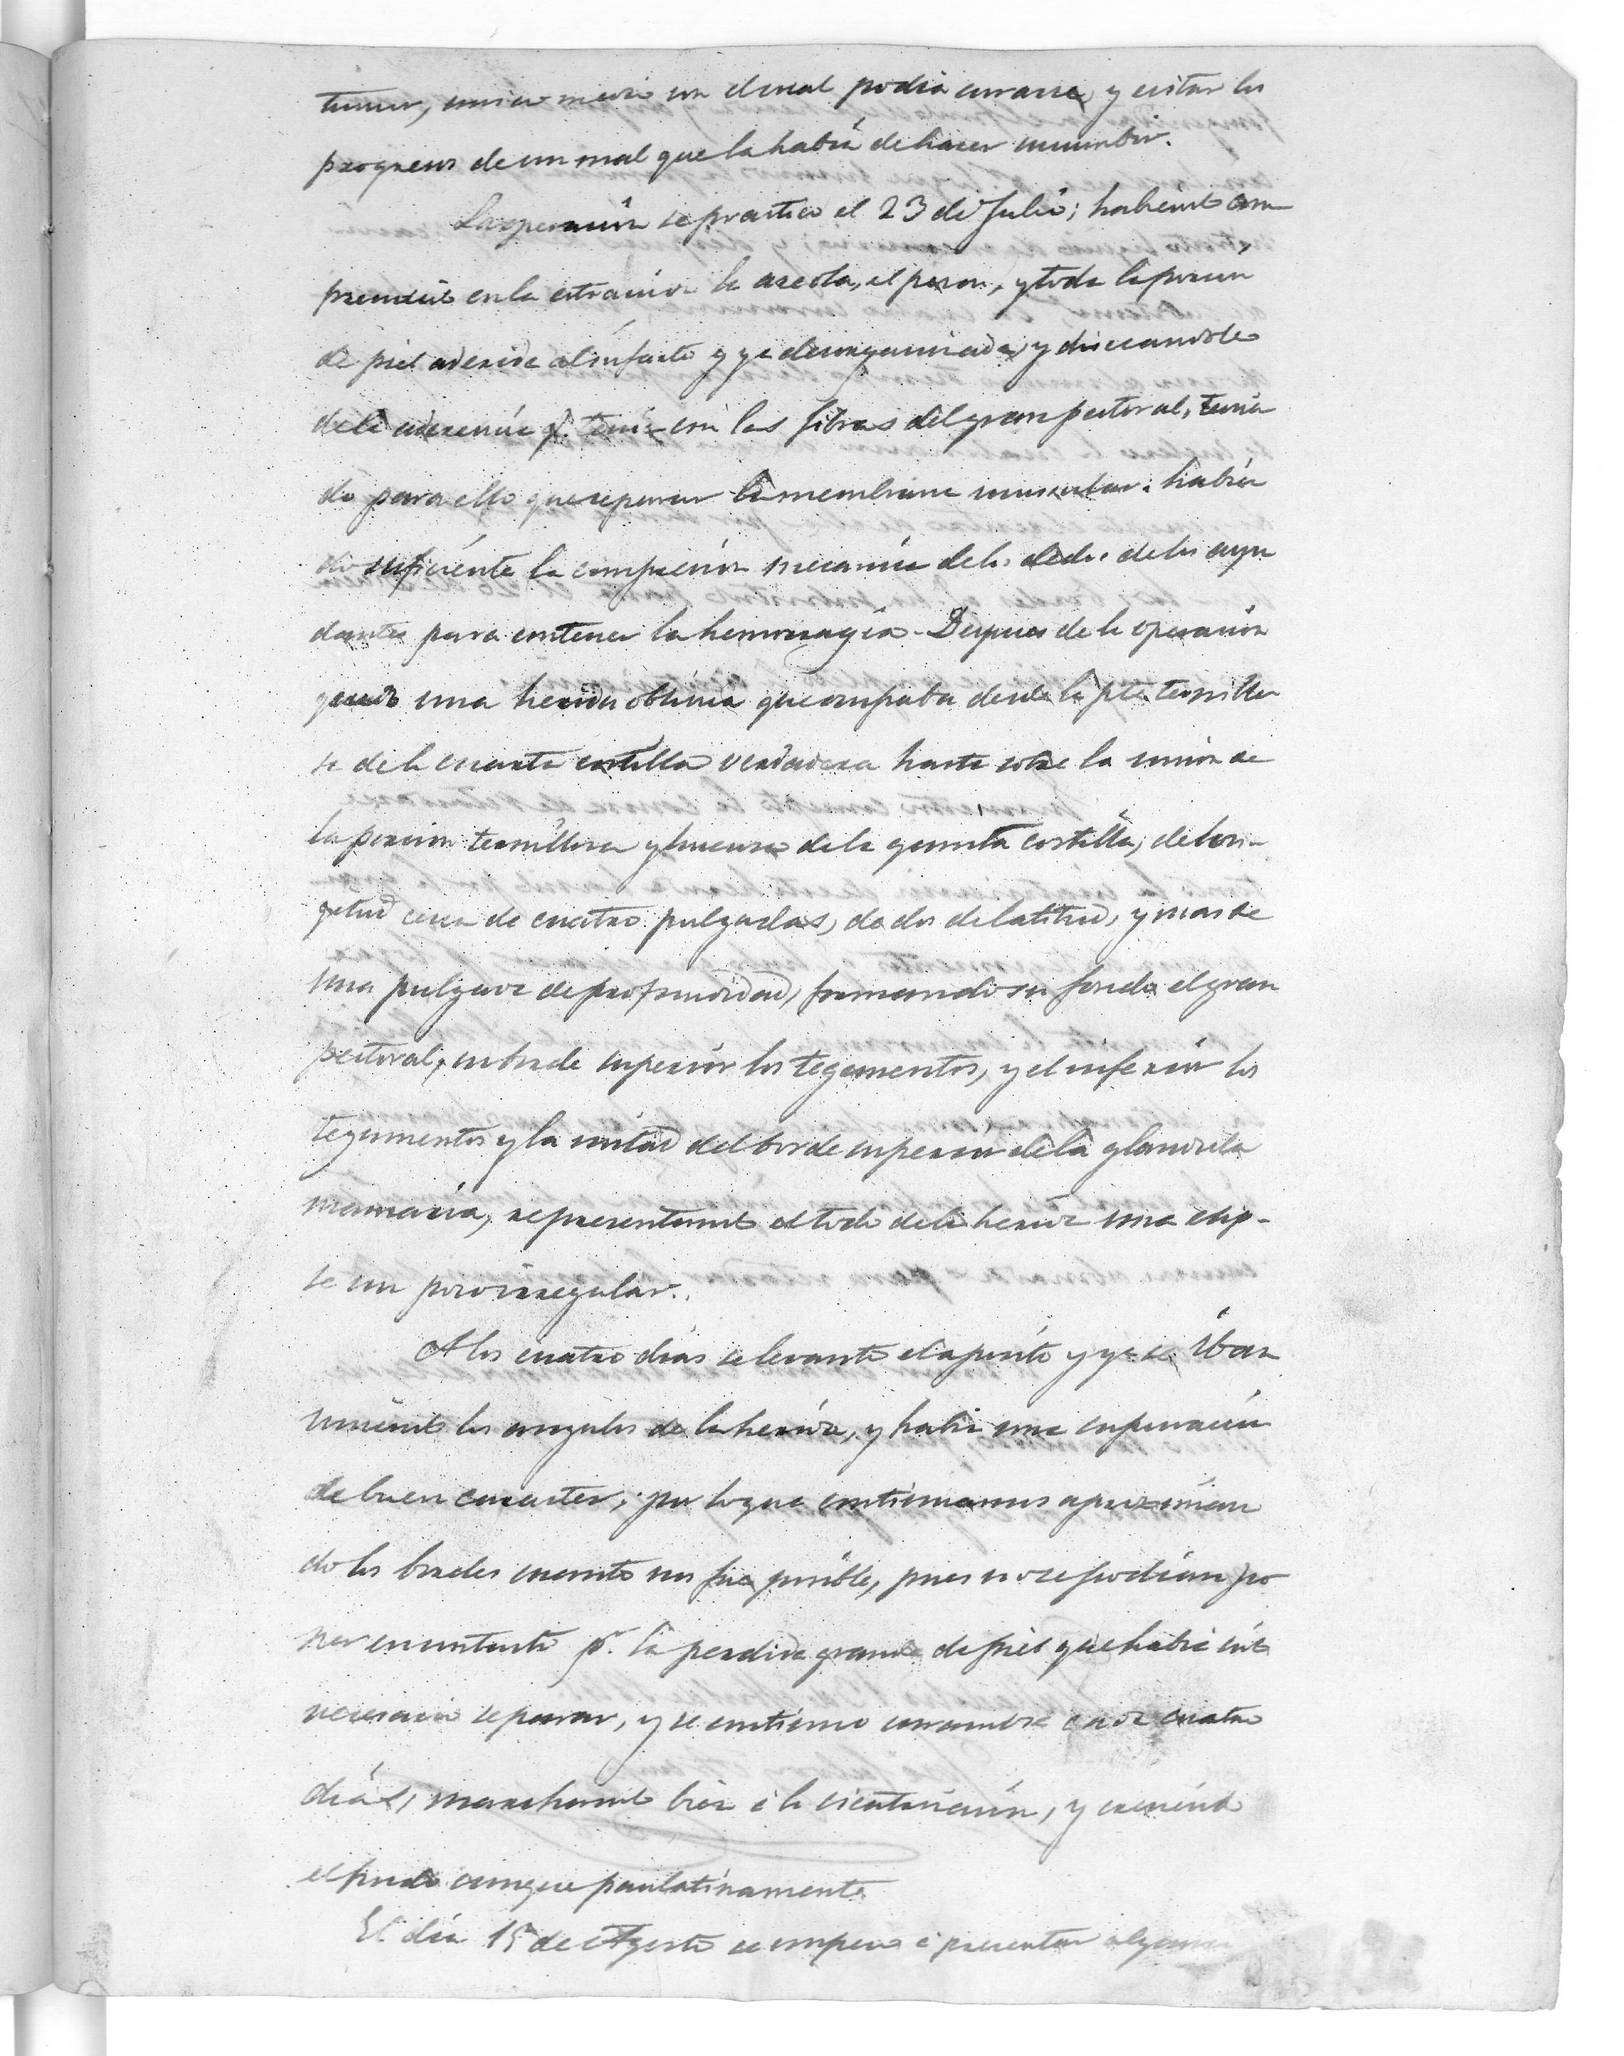 tumor, unico medio con el cual podia curarse y evitar los
progresos de un mal que la habia de hacer sucumbir.
La operacion se practicó el 23 de Julio; habiendo com
prendido en la estracion la areola, el pezon, y toda la porcion
de piel aderida al infarto y ya desorganizada y disecandole
de la aderencia q.e tenia con las fibras del gran pectoral, tenien
do para ello que separar la membrana muscular. habien
do suficiente la compresion mecanica de los dedos de los ayu
dantes para contener la hemorragia. Despues de la operacion
quedo una herida oblicua que ocupaba desde la pte. ternillo
sa de la cuarta costilla verdadera hasta sobre la union de
la porcion ternillosa y huesosa de la quinta costilla, de lon-
gitud cerca de cuatro pulgadas, de dos de latitud, y mas de
una pulgada de profundidad, formando su fondo el gran
pectoral, su borde superior los tegumentos, y el inferior los
tegumentos y la mitad del borde superior de la glandula
mamaria, representando el todo de la herida una elip-
se un poco irregular.
A los cuatro dias se levantó el aposito y ya se iban
uniendo los angulos de la herida, y habia una supuracion
de buen caracter; por lo que continuamos aproximan
do los bordes cuanto nos fue posible, pues no se podian po
ner en contacto p.r la perdida grande de piel que habia sido
necesario separar, y se continuo curandose cada cuatro
dias, marchando bien á la cicatrizacion, y cediendo
el fondo aunque paulatinamente
El dia 15 de Agosto se empezo á presentar alguna